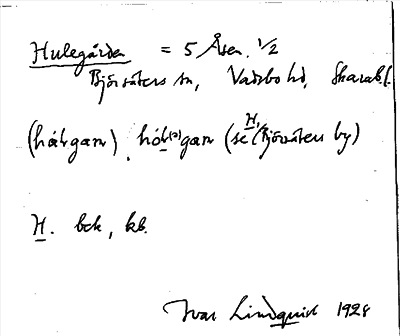 Hulegården = 5 Åsen. 1/2
Björsäters sn, Vadsbo hd, Skarab. l.
(hå̀gan), hó(l)gan (se H, Björsäters by)
H. bek, kb.
Ivar Lindquist 1928